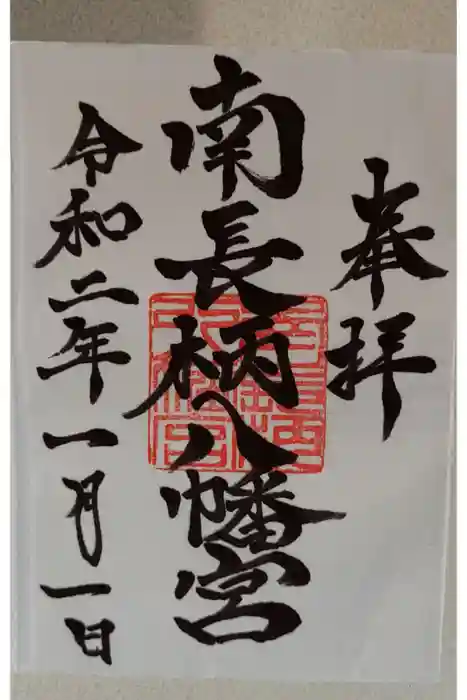 奉拝
南長柄八幡宮
令和二年一月一日